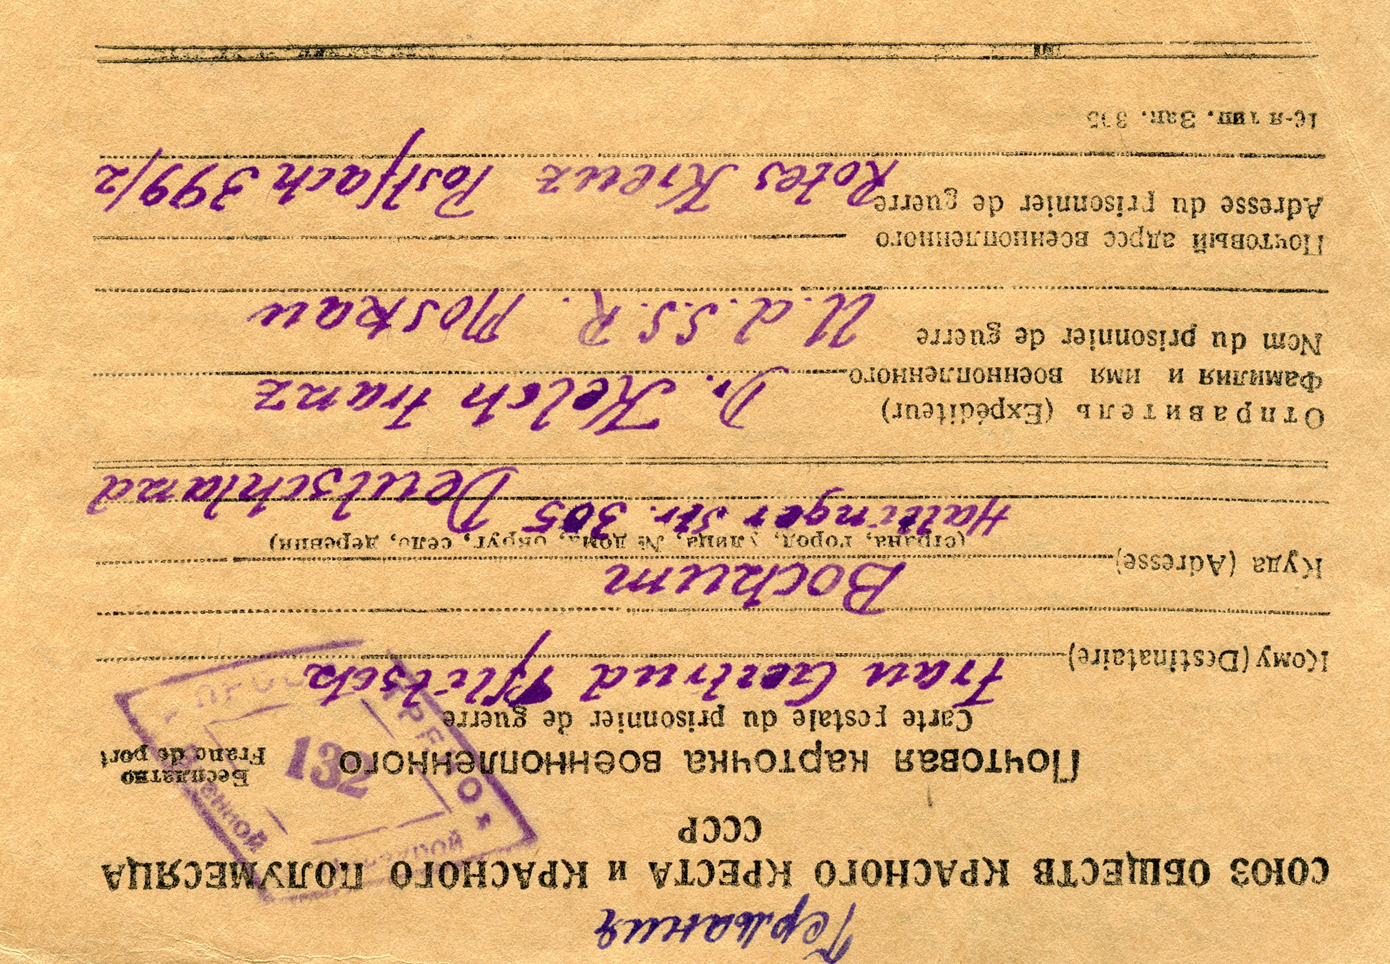 Германия
СОЮЗ ОБЩЕСТВ КРАСНОГО КРЕСТА и КРАСНОГО ПОЛУМЕСЯЦА
СССР
Почтовая карточка военнопленного
Бесплатно
Carte postale du prisonnier de guerre
Franc de port
132
Кому (Destinataire) Frau Gertrud
Bochum
Куда (Adresse)
(страна, город, улица, № дома, округ, село, деревня)
Hattinger Str. 305 Deutschland
Отправитель (Expéditeur)
Фамилия и имя военнопленного Dr. Kelch Franz
Nom du prisonnier de guerre
U.d.S.S.R. Moskau
Почтовый адрес военнопленного
Adresse du prisonnier de guerre Rotes Kreuz Postfach 399/2
16-я тип. Зак. 305